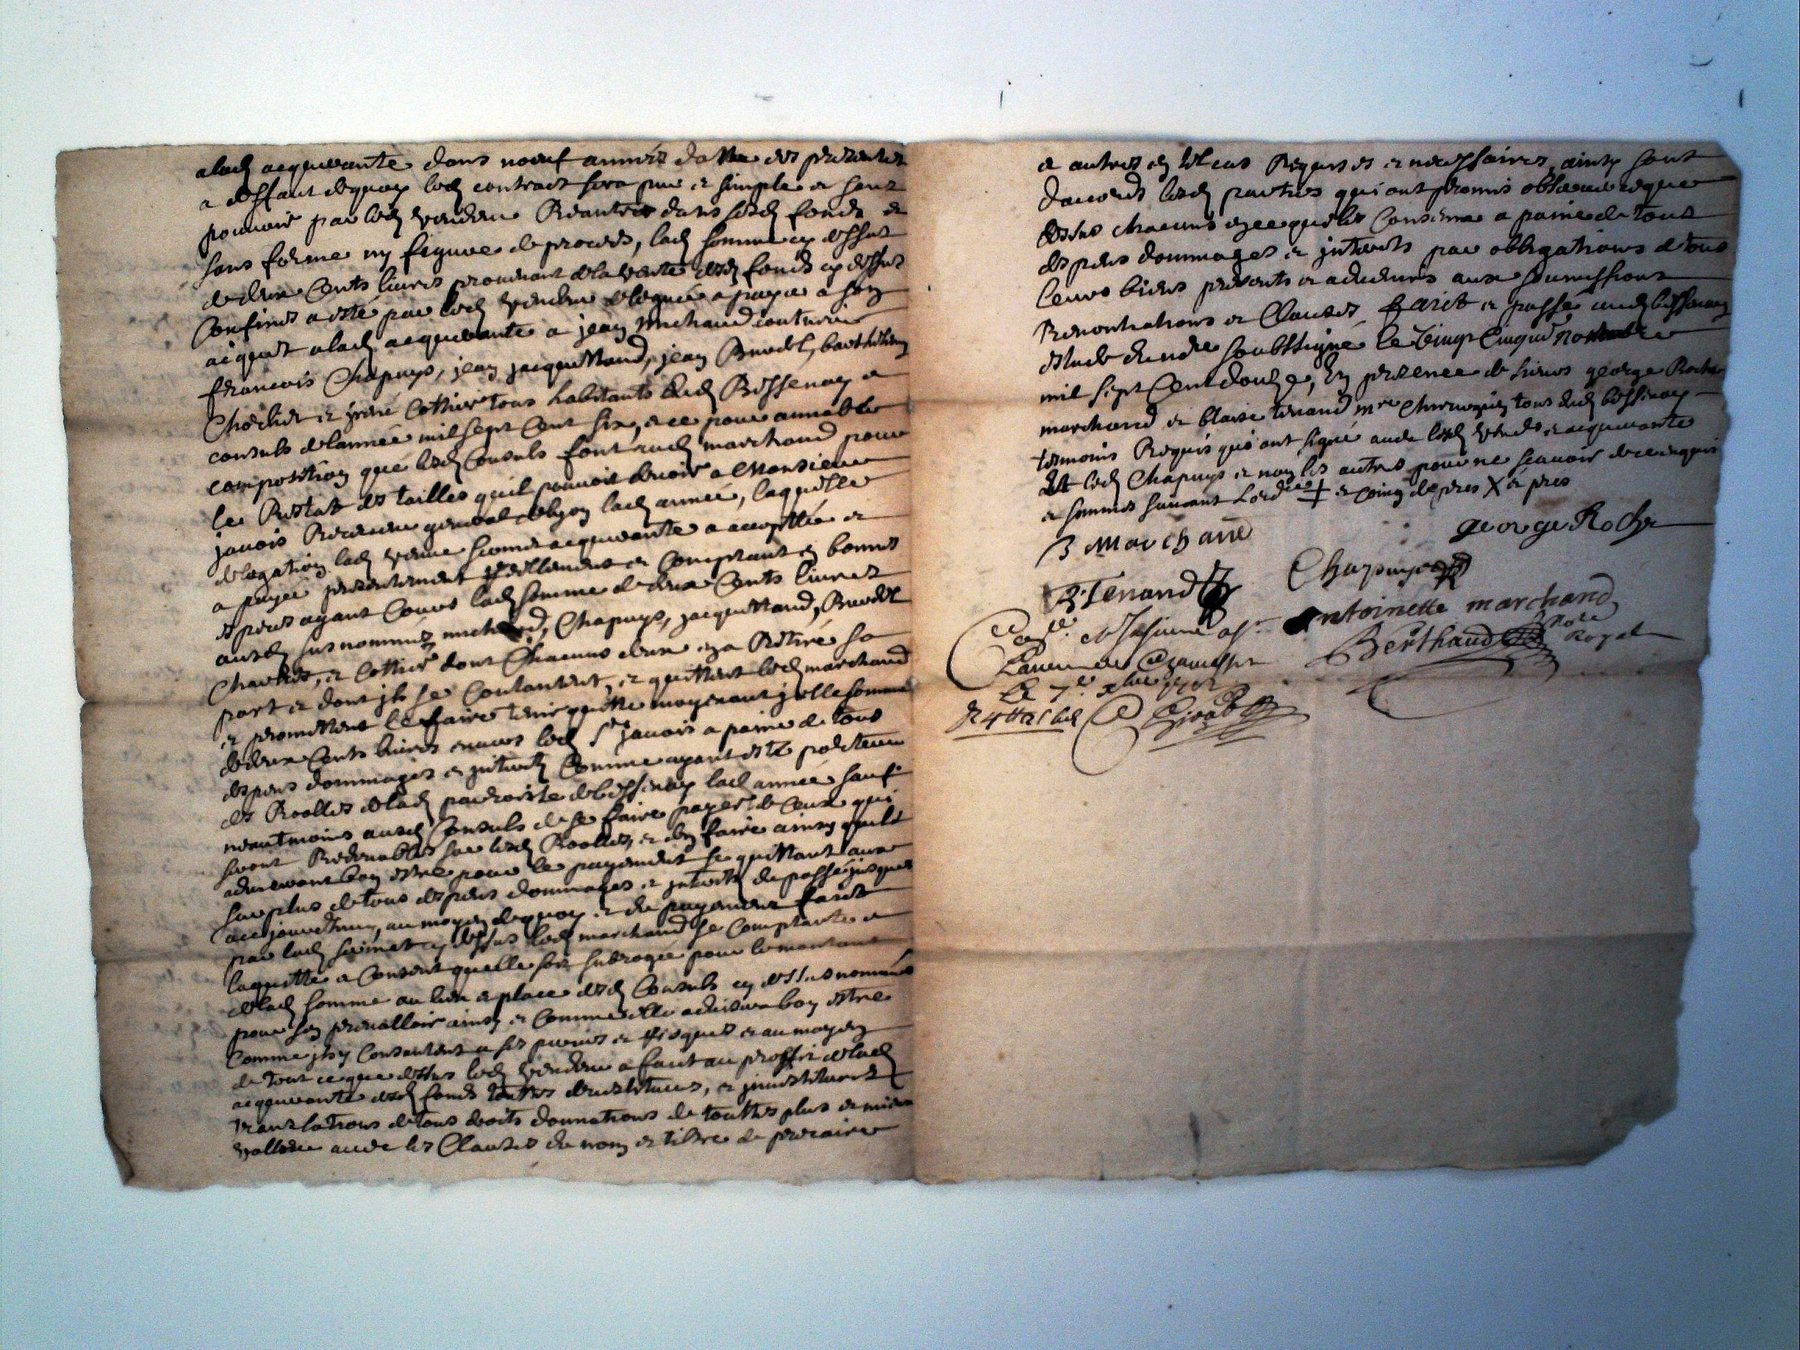 alad acquerante dans noeuf années datte des presentes
a deffaut dequoy led contract sera pur et simple et sans
pouvoir par led vendeur Reantrer dans lesd fonds et
sans forme ny figure de procès, lad somme cy dessus
de deux Cents livres provenant de la vente desd fonds cy dessus
Confinés a esté par led vendeur deleguée a payer a son
acquit alad acquerante a jean michaud couturier
francois Chapuys, jean jacquettand, jean Brudel, barthelemy
et
consuls de lannée mil sept Cent six, et ce pour amiable
composition que lesd Consuls font aud marchand pour
le Restat des tailles quil pouvoit devoir a Monsieur
janois Receveur general de lyon lad année, laquelle
delegation lad acquerante a acceptée et
a payé presentement Reellement et Comptant en bonnes
especes ayant Cours lad somme de deux Cents livres
ausd susnommés michaud, Chapuys, jacquettand, Brudel
et Cothier dont Chacuns deux en a Retiré sa
part et dont ils se Contantent, et quittent led marchand
et promettent le faire tenir quitte moyenant jcelle somme
de deux Cents livres envers led Sr janois a paine de tous
despens dommages et jnterets Comme ayant esté porteurs
des Roolles de lad parroisse de bessenay lad année sauf
neantmoins ausd Consuls de se faire payer de Ceux qui
seront Redevables sur lesd Roolles, et den faire ainsy quils
adviseront bon estre pour le payement se quittant au
surplus de tous despens dommages et jnterets du passé jusques
aujourdhuy, au moyen dequoy et du payement fait
par lad cy dessus led marchand se Contante et
laquitte et Consent quelle soit subrogée pour le montant
de lad somme au lieu et place desd Consuls cy dessus nommés
pour sen prevalloir ainsy et Comme elle advisera bon estre
Comme ils y Consentent a ses perils et Risques et au moyen
de tout ce que dessus led vendeur a fait au proffit de lad
acquerante desd fonds touttes devestitures, et jnvestitures
translations de tous droits donnations de touttes plus et mieux
vallue avec les Clauses du nom et tiltre de precaire
et autres en tel cas Requises et necessaires, ainsy sont
daccords lesd parties qui ont promis observer ce que
dessus chacuns en ce quil les Conserne a paine de tous
despens dommages et jnterets par obligations de tous
leurs biens presents et advenirs aux soumissions
Renontiations et Clauses fait et passé aud bessenay
estude du nore soubssigné le Vingt Cinq novembre
mil sept Cent douze, En presence de sieurs george Rocher
marchand et blaise tenand mre Chirurgien tous dud bessenay
tesmoins Requis qui ont signé avec lesd vendr et acquerante
et led Chapuys et non les autres pour ne scavoir de ce enquis
et sommés suivant Lordce + et Coing de pres X et pres
B marchand
george Rocher
B. Tenand
Chapuys
Antoinette marchand
Berthaud Nore Royal
Le 7e xbre 1712